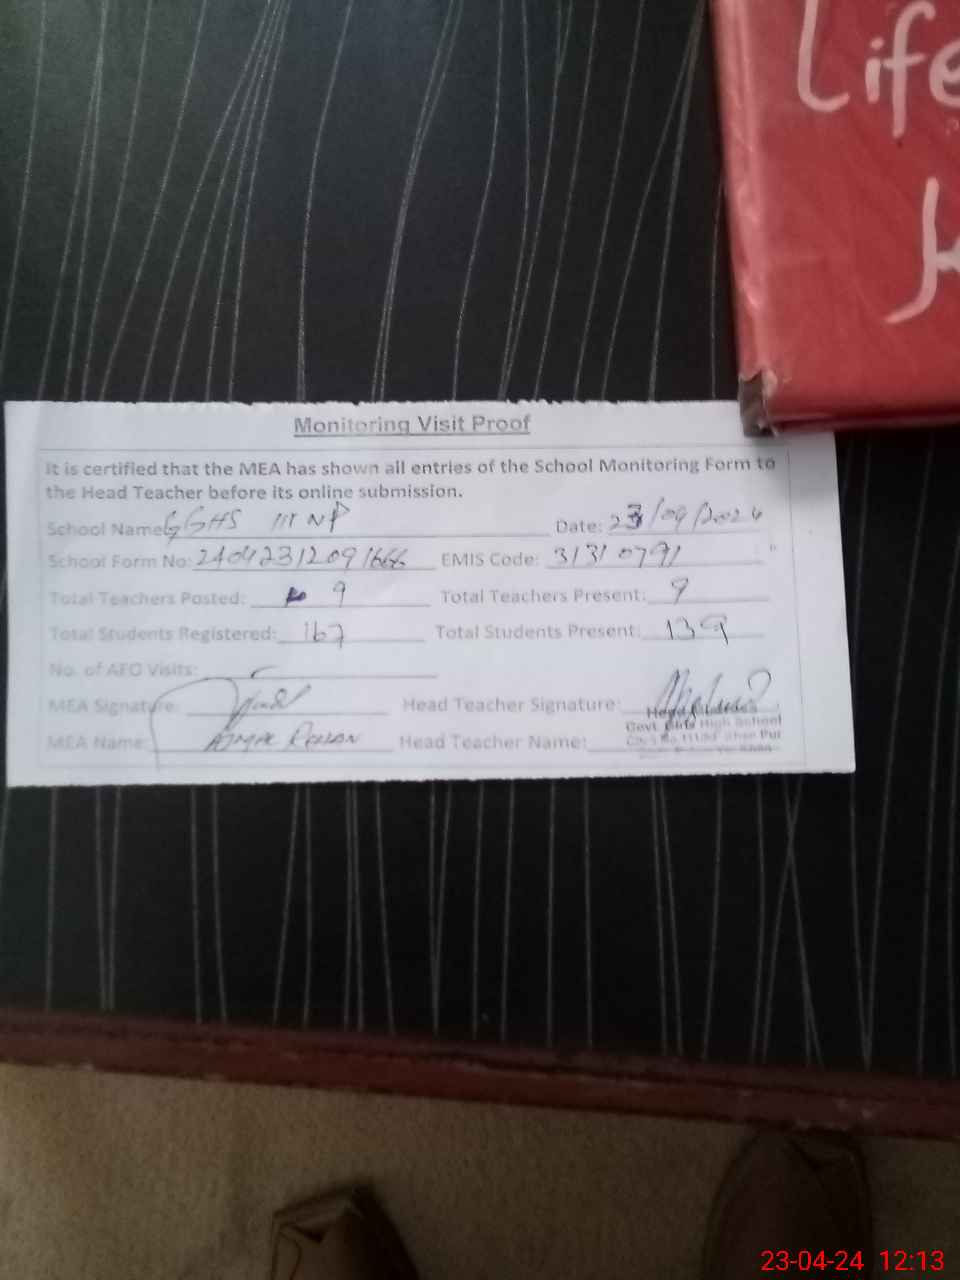 Life
Monitoring Visit Proof
It is certified that the MEA has shown all entries of the School Monitoring Form to
the Head Teacher before its online submission.
School Name: GGHS 111 NP Date: 23/04/2024
School Form No: 24042312091666 EMIS Code: 31310791
Total Teachers Posted: 9 Total Teachers Present: 9
Total Students Registered: 167 Total Students Present: 139
No. of AEO Visits:
MEA Signature: Head Teacher Signature:
MEA Name: Head Teacher Name:
Govt. Girls High School
23-04-24 12:13